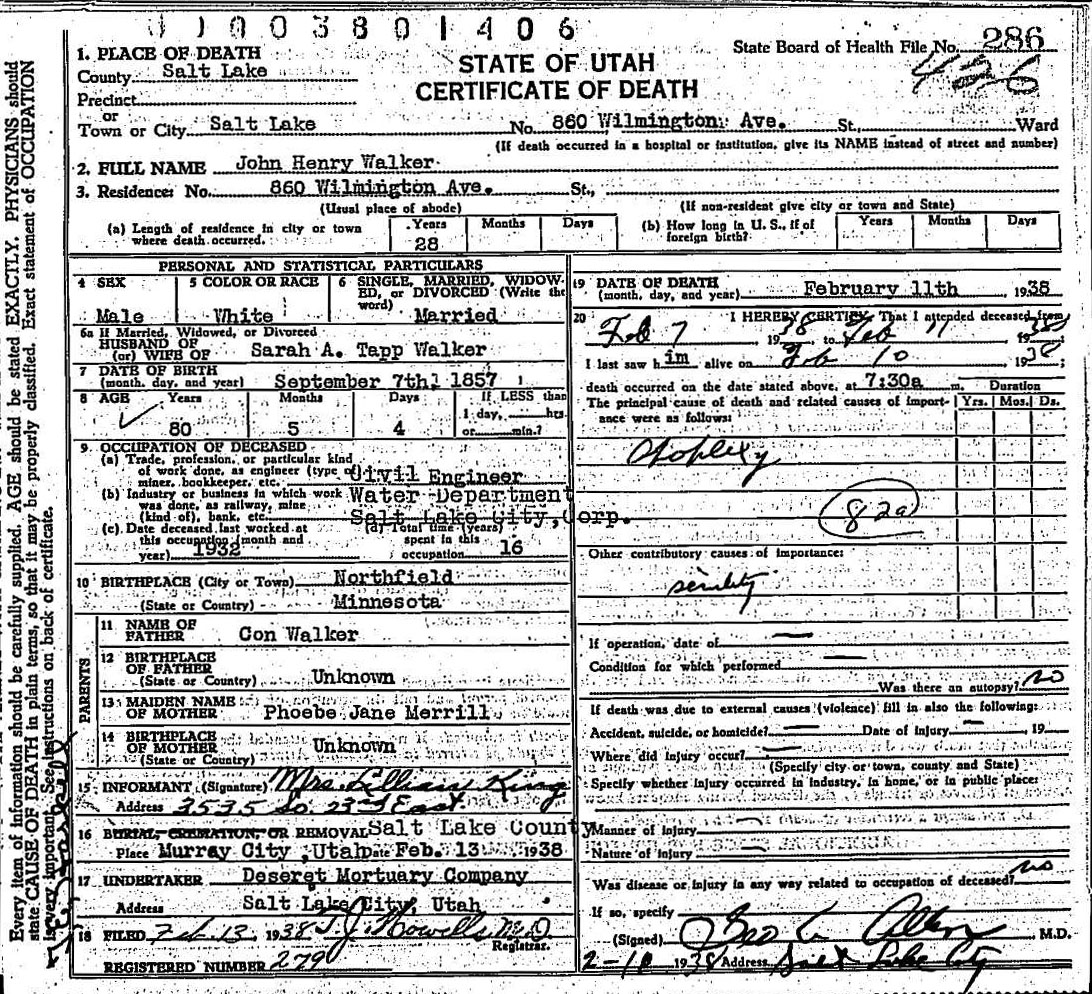 1003801406
State Board of Health File No. 286
426
1. PLACE OF DEATH
County Salt Lake
STATE OF UTAH
CERTIFICATE OF DEATH
Precinct
or
Town or City Salt Lake No. 860 Wilmington Ave. St., Ward
(If death occurred in a hospital or institution, give its NAME instead of street and number)
2. FULL NAME John Henry Walker
3. Residence: No. 860 Wilmington Ave. St.,
(Usual place of abode) (If non-resident give city or town and State)
(a) Length of residence in city or town where death occurred. Years 28 Months Days
(b) How long in U. S., if of foreign birth? Years Months Days
PERSONAL AND STATISTICAL PARTICULARS
4 SEX Male
5 COLOR OR RACE White
6 SINGLE, MARRIED, WIDOWED, or DIVORCED (Write the word) Married
6a If Married, Widowed, or Divorced
HUSBAND OF
(or) WIFE OF Sarah A. Tapp Walker
7 DATE OF BIRTH
(month, day, and year) September 7th, 1857
8 AGE Years 80 Months 5 Days 4
If LESS than
1 day, hrs.
or min.?
9 OCCUPATION OF DECEASED
(a) Trade, profession, or particular kind
of work done, as engineer (type of
miner, bookkeeper, etc. Civil Engineer
(b) Industry or business in which work
was done, as railway, mine
(kind of), bank, etc. Water Department
Salt Lake City, Corp.
(c) Date deceased last worked at
this occupation (month and
year) 1932
(d) Total time (years)
spent in this
occupation 16
10 BIRTHPLACE (City or Town) Northfield
(State or Country) Minnesota
PARENTS
11 NAME OF
FATHER Con Walker
12 BIRTHPLACE
OF FATHER
(State or Country) Unknown
13 MAIDEN NAME
OF MOTHER Phoebe Jane Merrill
14 BIRTHPLACE
OF MOTHER
(State or Country) Unknown
15 INFORMANT (Signature) Mrs. Lillian King
Address 3535 So. 23rd East
16 BURIAL, CREMATION, OR REMOVAL Salt Lake County
Place Murray City, Utah Date Feb. 13 1938
17 UNDERTAKER Deseret Mortuary Company
Address Salt Lake City, Utah
18 FILED Feb. 13, 1938 T. J. Howells M.D.
Registrar.
REGISTERED NUMBER 279
19 DATE OF DEATH
(month, day, and year) February 11th 1938
20 I HEREBY CERTIFY, That I attended deceased from
Feb 7 1938 to Feb 11 1938
I last saw him alive on Feb 10 1938;
death occurred on the date stated above, at 7:30a m.
Duration
The principal cause of death and related causes of importance were as follows: Yrs. Mos. Ds.
Apoplexy
82a
Other contributory causes of importance:
senility
If operation, date of —
Condition for which performed —
Was there an autopsy? no
If death was due to external causes (violence) fill in also the following:
Accident, suicide, or homicide? — Date of Injury — 19
Where did injury occur? —
(Specify city or town, county and State)
Specify whether injury occurred in industry, in home, or in public place:
Manner of Injury —
Nature of Injury —
Was disease or injury in any way related to occupation of deceased? no
If so, specify
(Signed) Geo Allen M.D.
1938 Address Salt Lake City
Every item of information should be carefully supplied. AGE should be stated EXACTLY. PHYSICIANS should
state CAUSE OF DEATH in plain terms, so that it may be properly classified. Exact statement of OCCUPATION
is very important. See instructions on back of certificate.